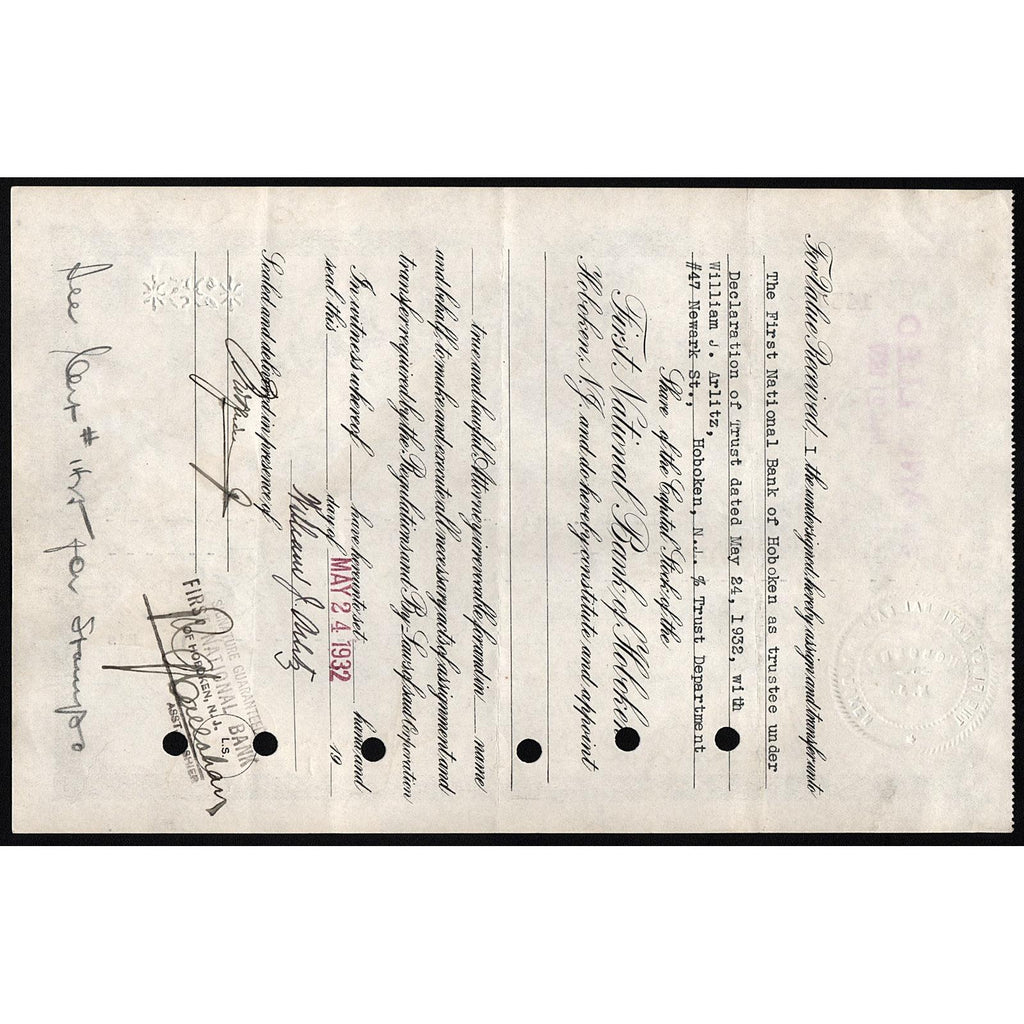 For Value Received, I the undersigned, hereby assign and transfer unto
The First National Bank of Hoboken as trustee under
Declaration of Trust dated May 24, 1932, with
William J. Arlitz,
#47 Newark St., Hoboken, N.J. % Trust Department
Share of the Capital Stock of the
First National Bank of Hoboken
Hoboken, N.J. and do hereby constitute and appoint
true and lawful Attorney irrevocable for and in name
and behalf, to make and execute all necessary acts of assignment and
transfer required by the Regulations and By-Laws of said Corporation
In witness whereof have hereunto set hand and
seal this day of MAY 24 1932 19
William J. Arlitz
Sealed and delivered in presence of
SIGNATURE GUARANTEED
FIRST NATIONAL BANK
OF HOBOKEN, N. J. L.S.
ASST CASHIER
See Cert # for Stamps